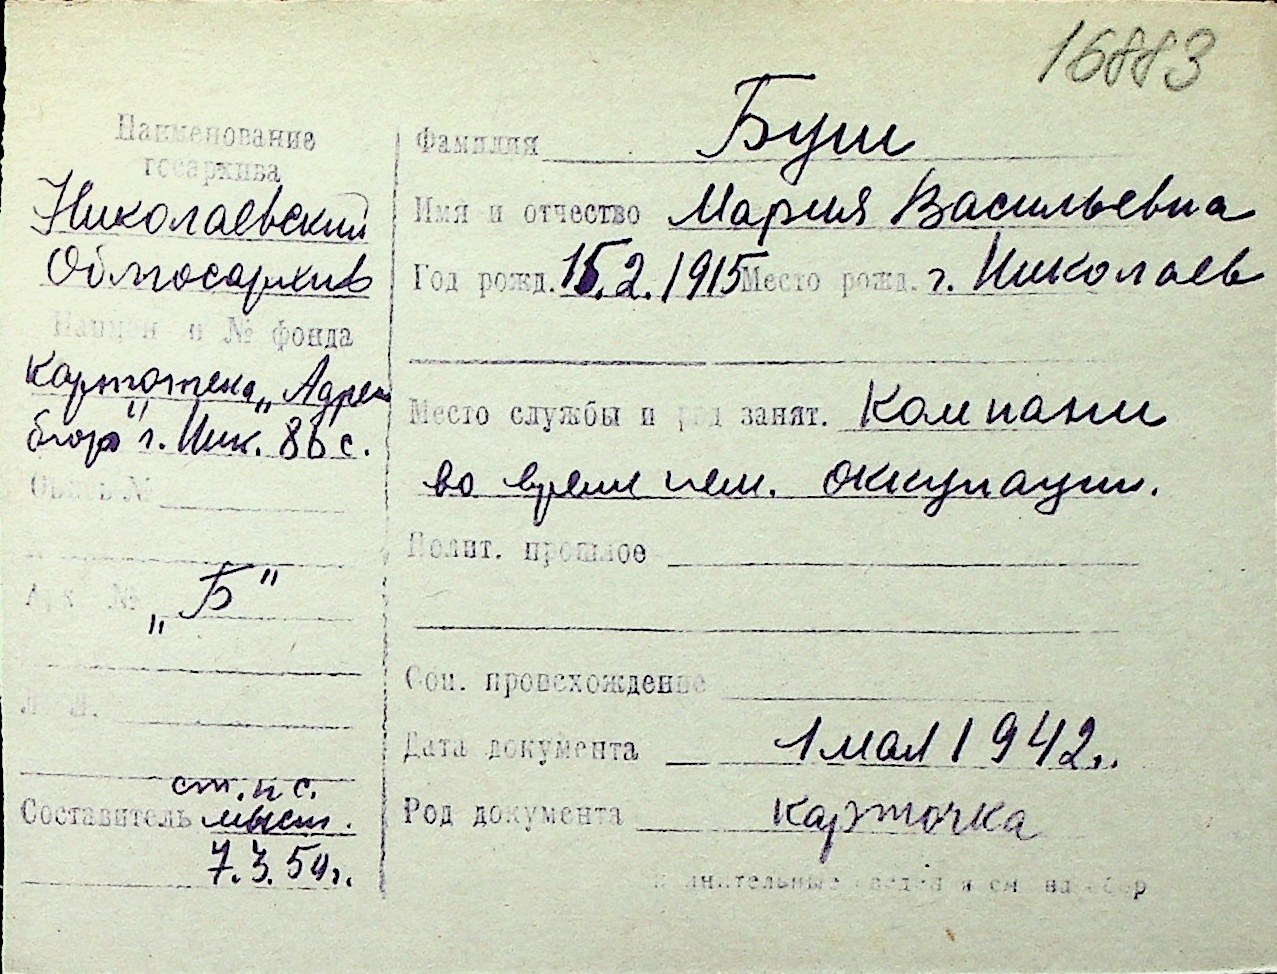 16883
Наименование
госархива
Николаевский
Облгосархив
Наимен и № фонда
Картотека „Адрес
бюро" г. Ник.
Опись №
„Б"
ст. н с.
Составитель
7.3.50г.
Фамилия Буш
Имя и отчество Мария Васильевна
Год рожд. 15.2.1915 Место рожд. г. Николаев
Место службы и род занят.
во время нем. оккупации.
Полит. прошлое
Соц. происхождение
Дата документа 1 мая 1942г.
Род документа карточка